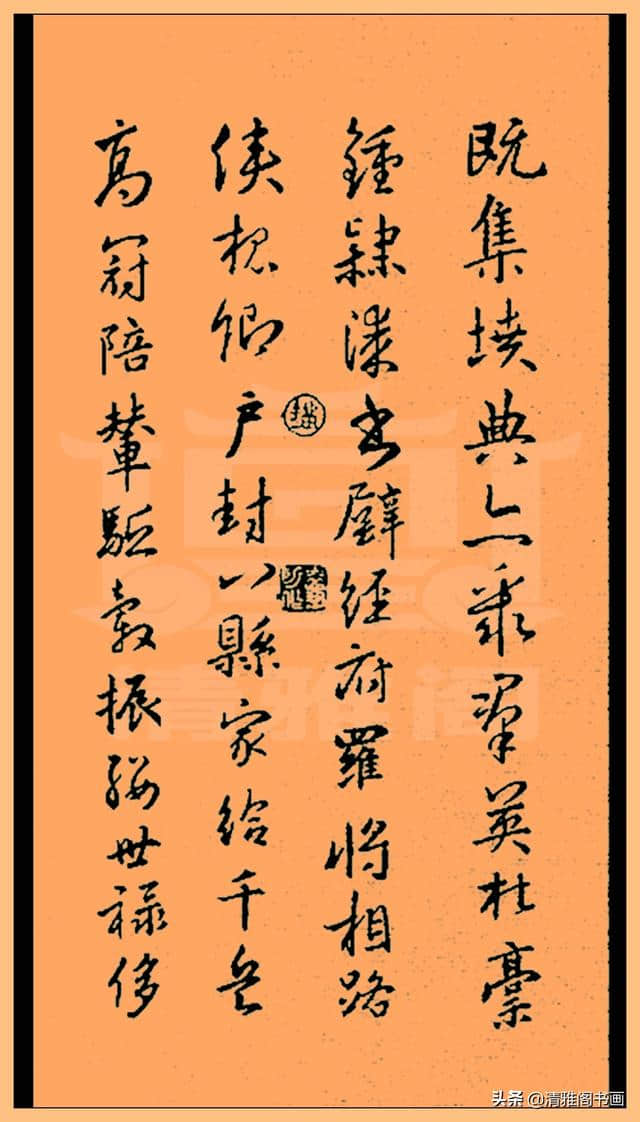 既集墳典亦聚羣英杜稾
鍾隸漆書壁經府羅将相路
侠槐卿户封八縣家給千兵
高冠陪輦駈轂振纓世禄侈
清雅阁
头条 @清雅阁书画